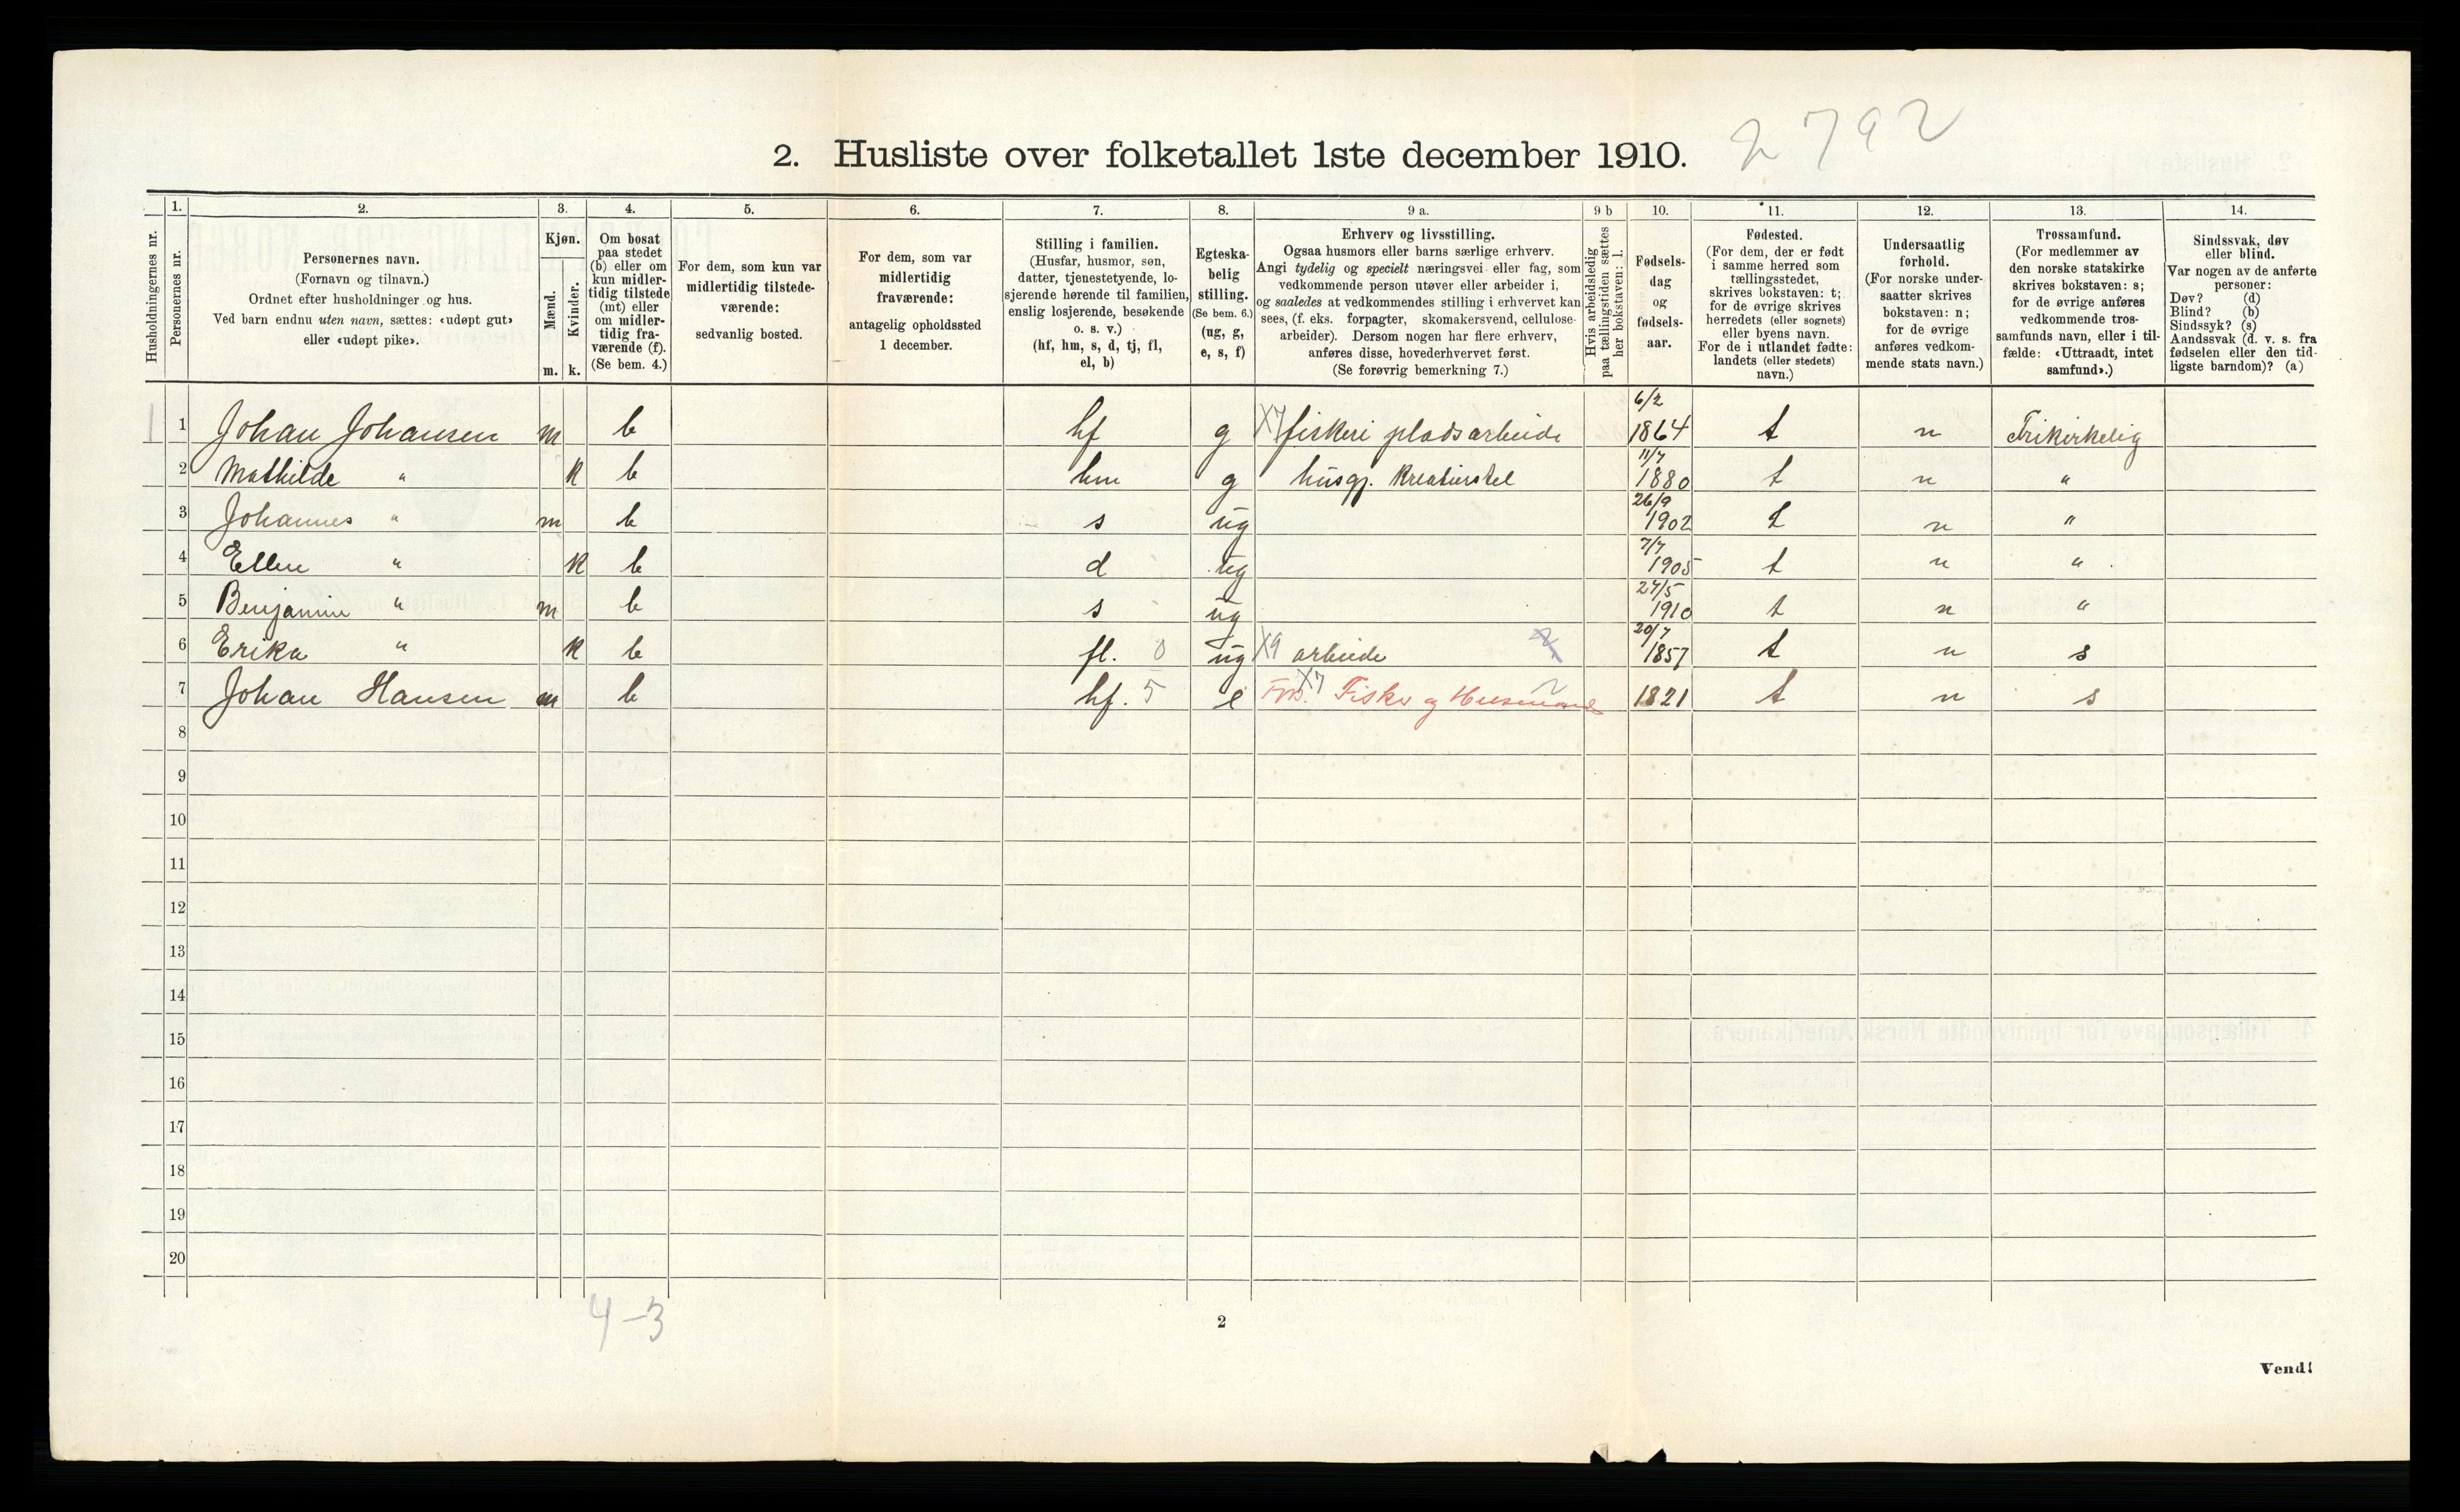 2. Husliste over folketallet 1ste december 1910.
2792
Husholdningernes nr.
1.
Personernes nr.
2.
Personernes navn.
(Fornavn og tilnavn.)
Ordnet efter husholdninger og hus.
Ved barn endnu uten navn, sættes: «udøpt gut»
eller «udøpt pike».
3.
Kjøn.
Mænd.
Kvinder.
m. k.
4.
Om bosat
paa stedet
(b) eller om
kun midler-
tidig tilstede
(mt) eller
om midler-
tidig fra-
værende (f).
(Se bem. 4.)
5.
For dem, som kun var
midlertidig tilstede-
værende:
sedvanlig bosted.
6.
For dem, som var
midlertidig
fraværende:
antagelig opholdssted
1 december.
7.
Stilling i familien.
(Husfar, husmor, søn,
datter, tjenestetyende, lo-
sjerende hørende til familien,
enslig losjerende, besøkende
o. s. v.)
(hf, hm, s, d, tj, fl,
el, b)
8.
Egteska-
belig
stilling.
(Se bem. 6.)
(ug, g,
e, s, f)
9 a.
Erhverv og livsstilling.
Ogsaa husmors eller barns særlige erhverv.
Angi tydelig og specielt næringsvei eller fag, som
vedkommende person utøver eller arbeider i,
og saaledes at vedkommendes stilling i erhvervet kan
sees, (f. eks. forpagter, skomakersvend, cellulose-
arbeider). Dersom nogen har flere erhverv,
anføres disse, hovederhvervet først.
(Se forøvrig bemerkning 7.)
9 b
Hvis arbeidsledig
paa tællingstiden sættes
her bokstaven: l.
10.
Fødsels-
dag
og
fødsels-
aar.
11.
Fødested.
(For dem, der er født
i samme herred som
tællingsstedet,
skrives bokstaven: t;
for de øvrige skrives
herredets (eller sognets)
eller byens navn.
For de i utlandet fødte:
landets (eller stedets)
navn.)
12.
Undersaatlig
forhold.
(For norske under-
saatter skrives
bokstaven: n;
for de øvrige
anføres vedkom-
mende stats navn.)
13.
Trossamfund.
(For medlemmer av
den norske statskirke
skrives bokstaven: s;
for de øvrige anføres
vedkommende tros-
samfunds navn, eller i til-
fælde: «Uttraadt, intet
samfund».)
14.
Sindssvak, døv
eller blind.
Var nogen av de anførte
personer:
Døv? (d)
Blind? (b)
Sindssyk? (s)
Aandssvak (d. v. s. fra
fødselen eller den tid-
ligste barndom)? (a)
1 1 Johan Johansen m b hf g X7 fiskeri pladsarbeide 6/2 1864 t n Frikirkelig
2 Mathilde " k b hm g husgj. Kreaturstel 11/7 1880 t n "
3 Johannes " m b s ug 26/9 1902 t n "
4 Ellen " k b d ug 7/7 1905 t n "
5 Benjamin " m b s ug 24/5 1910 t n "
6 Erika " k b fl. 0 ug X9 arbeide 20/7 1857 t n s
7 Johan Hansen m b hf. 5 e X7 Fisker og Husmand 1821 t n s
8
9
10
11
12
13
14
15
16
17
18
19
20
4-3
2
Vend!